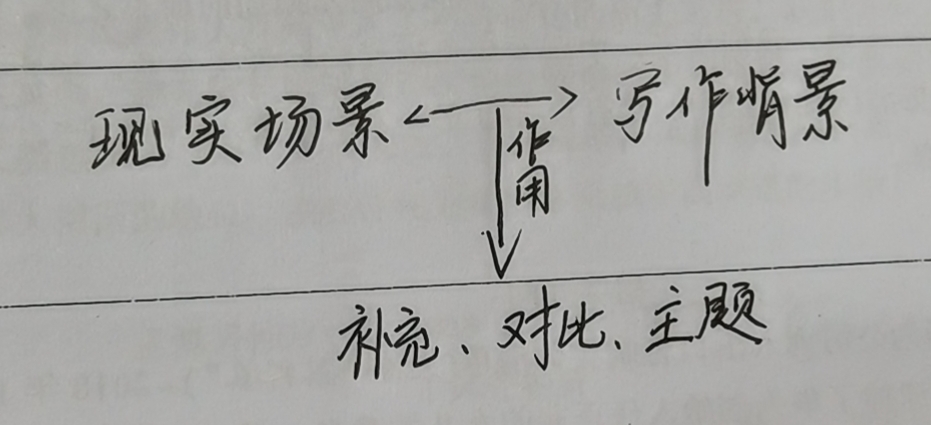 现实场景 <——> 写作背景
作用
补充、对比、主题